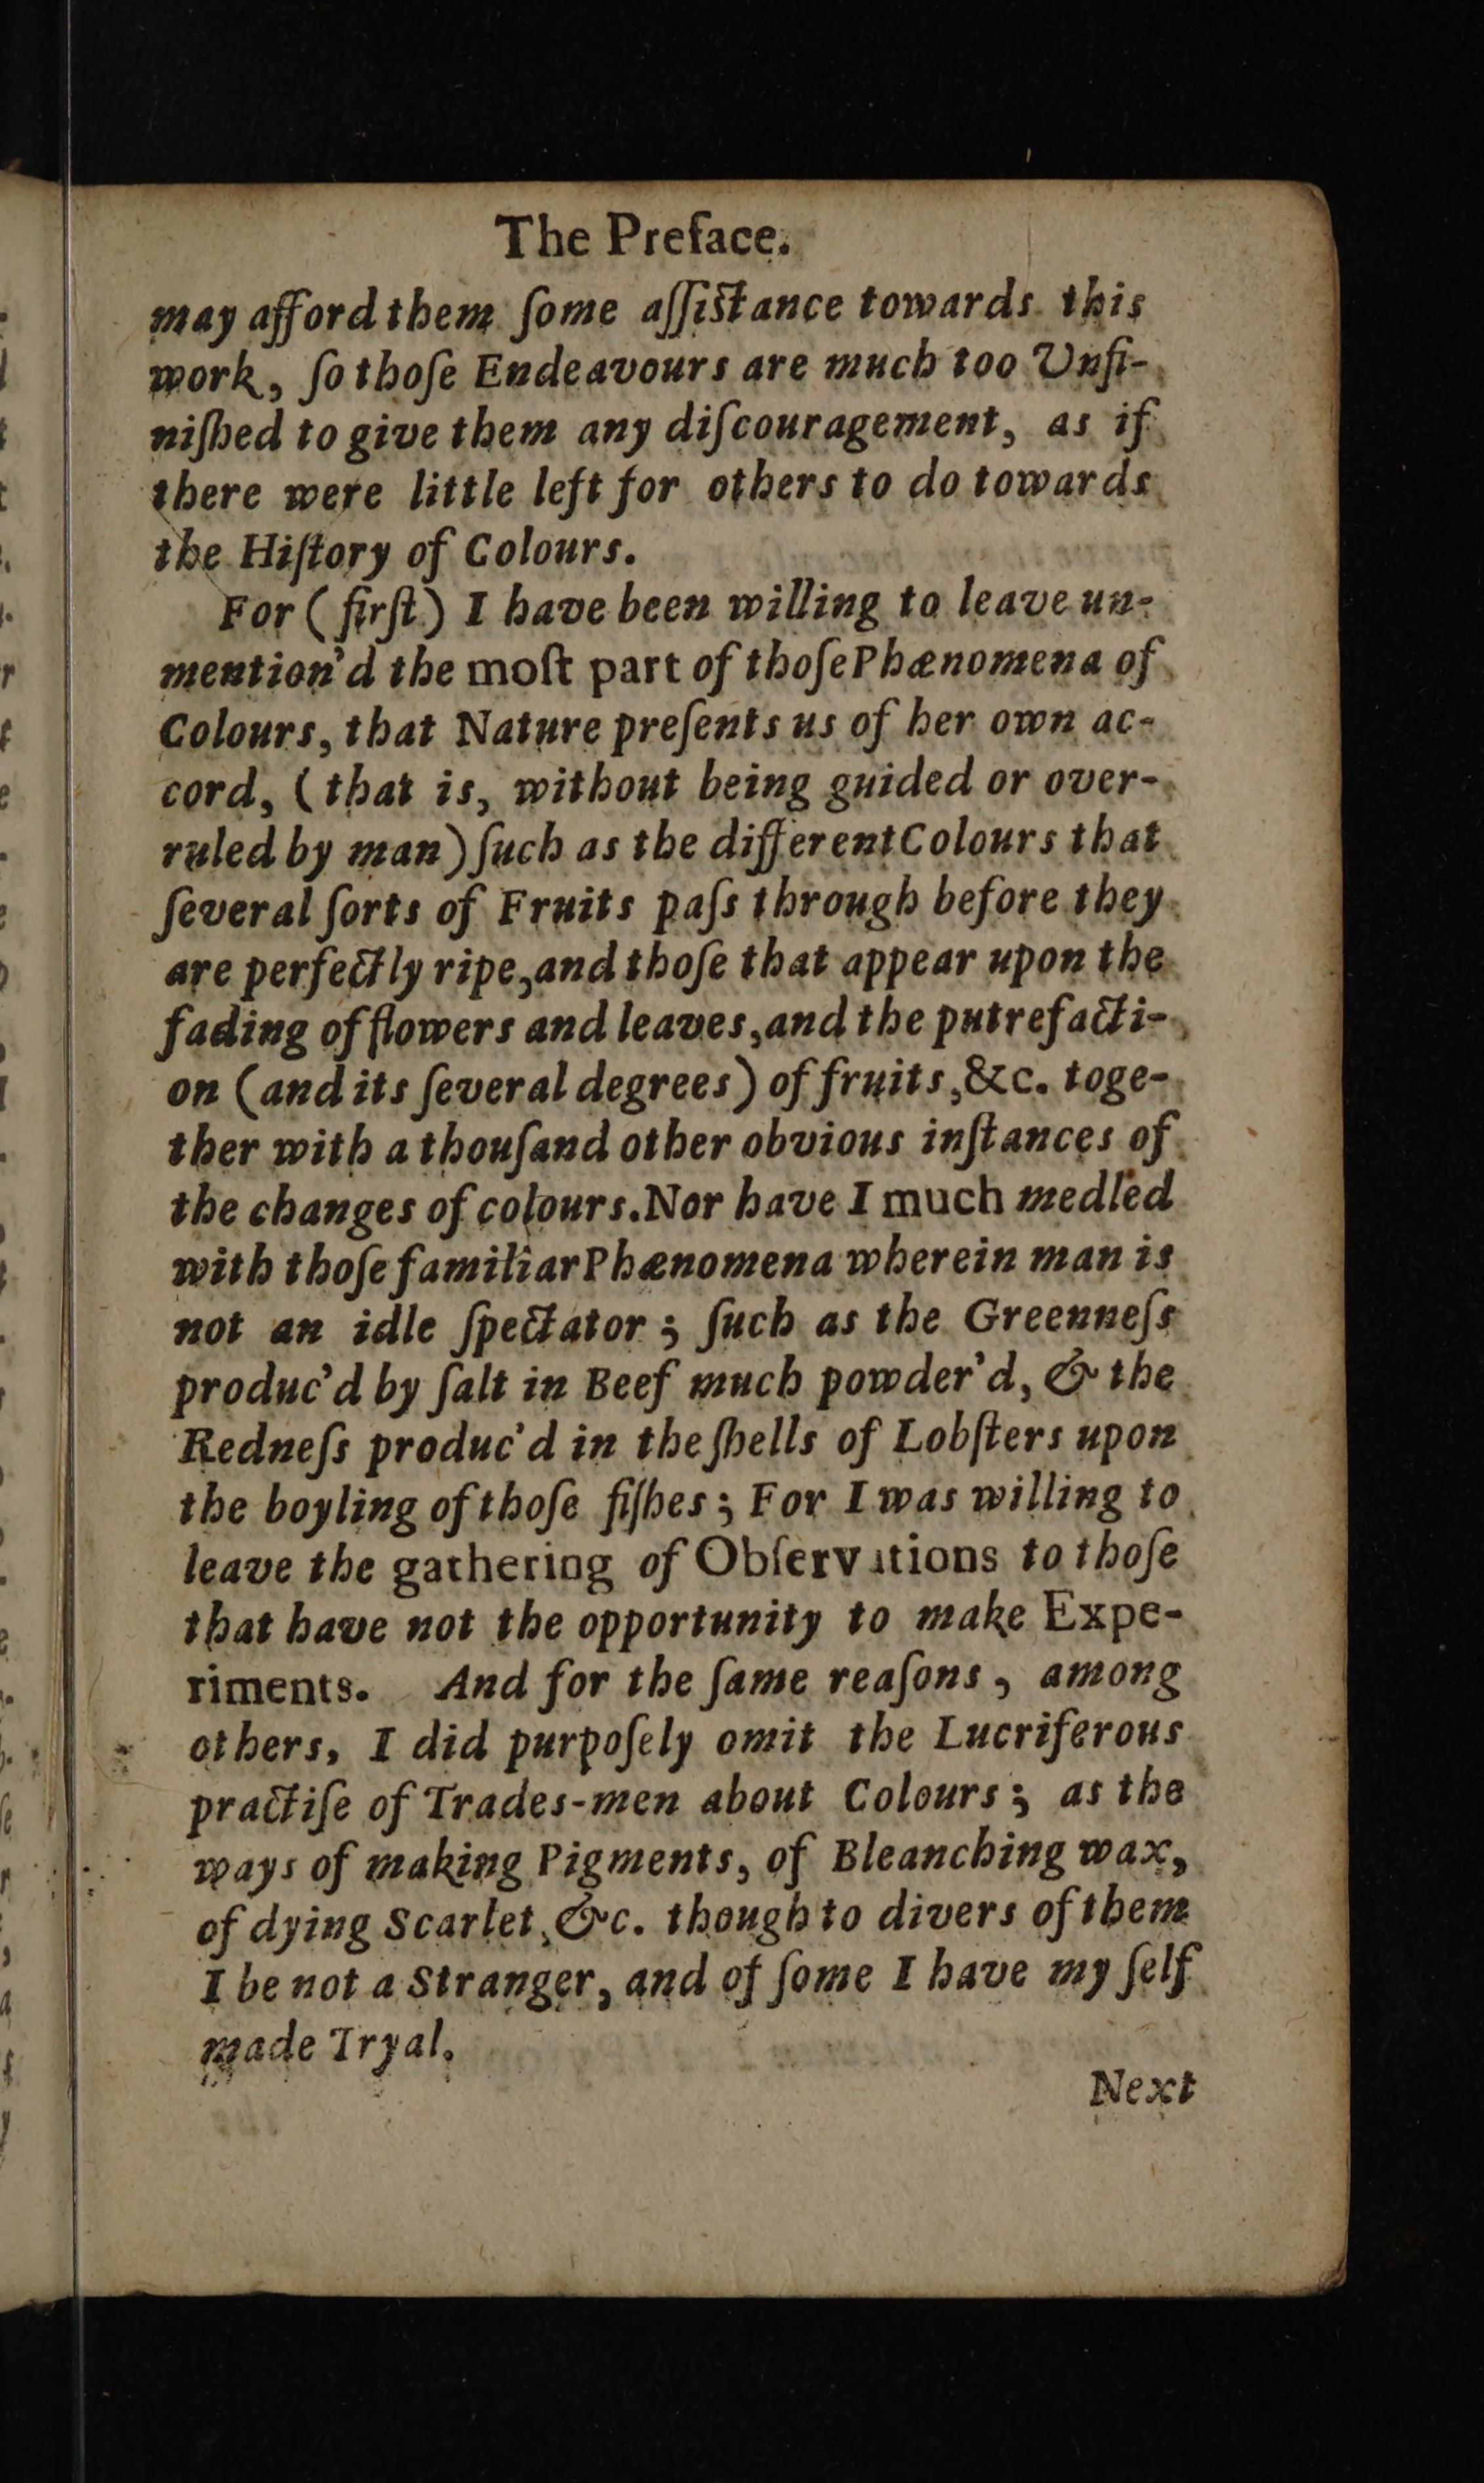 The Preface.
may afford them ſome aſſiſtance towards this
work, ſo thoſe Endeavours are much too Unfi-
niſhed to give them any diſcouragement, as if
there were little left for others to do towards
the Hiſtory of Colours.
For (firſt) I have been willing to leave un-
mention'd the moſt part of thoſe Phænomena of
Colours, that Nature preſents us of her own ac-
cord, (that is, without being guided or over-
ruled by man) ſuch as the different Colours that
ſeveral ſorts of Fruits paſs through before they
are perfectly ripe, and thoſe that appear upon the
fading of flowers and leaves, and the putrefacti-
on (and its ſeveral degrees) of fruits, &c. toge-
ther with a thouſand other obvious inſtances of
the changes of colours. Nor have I much medled
with thoſe familiar Phænomena wherein man is
not an idle ſpectator; ſuch as the Greenneſs
produc'd by ſalt in Beef much powder'd, & the
Redneſs produc'd in the ſhells of Lobſters upon
the boyling of thoſe fiſhes; For I was willing to
leave the gathering of Obſervations to thoſe
that have not the opportunity to make Expe-
riments. And for the ſame reaſons, among
others, I did purpoſely omit the Lucriferous
practiſe of Trades-men about Colours; as the
ways of making Pigments, of Bleanching wax,
of dying Scarlet, &c. though to divers of them
I be not a Stranger, and of ſome I have my ſelf
made Tryal.
Next